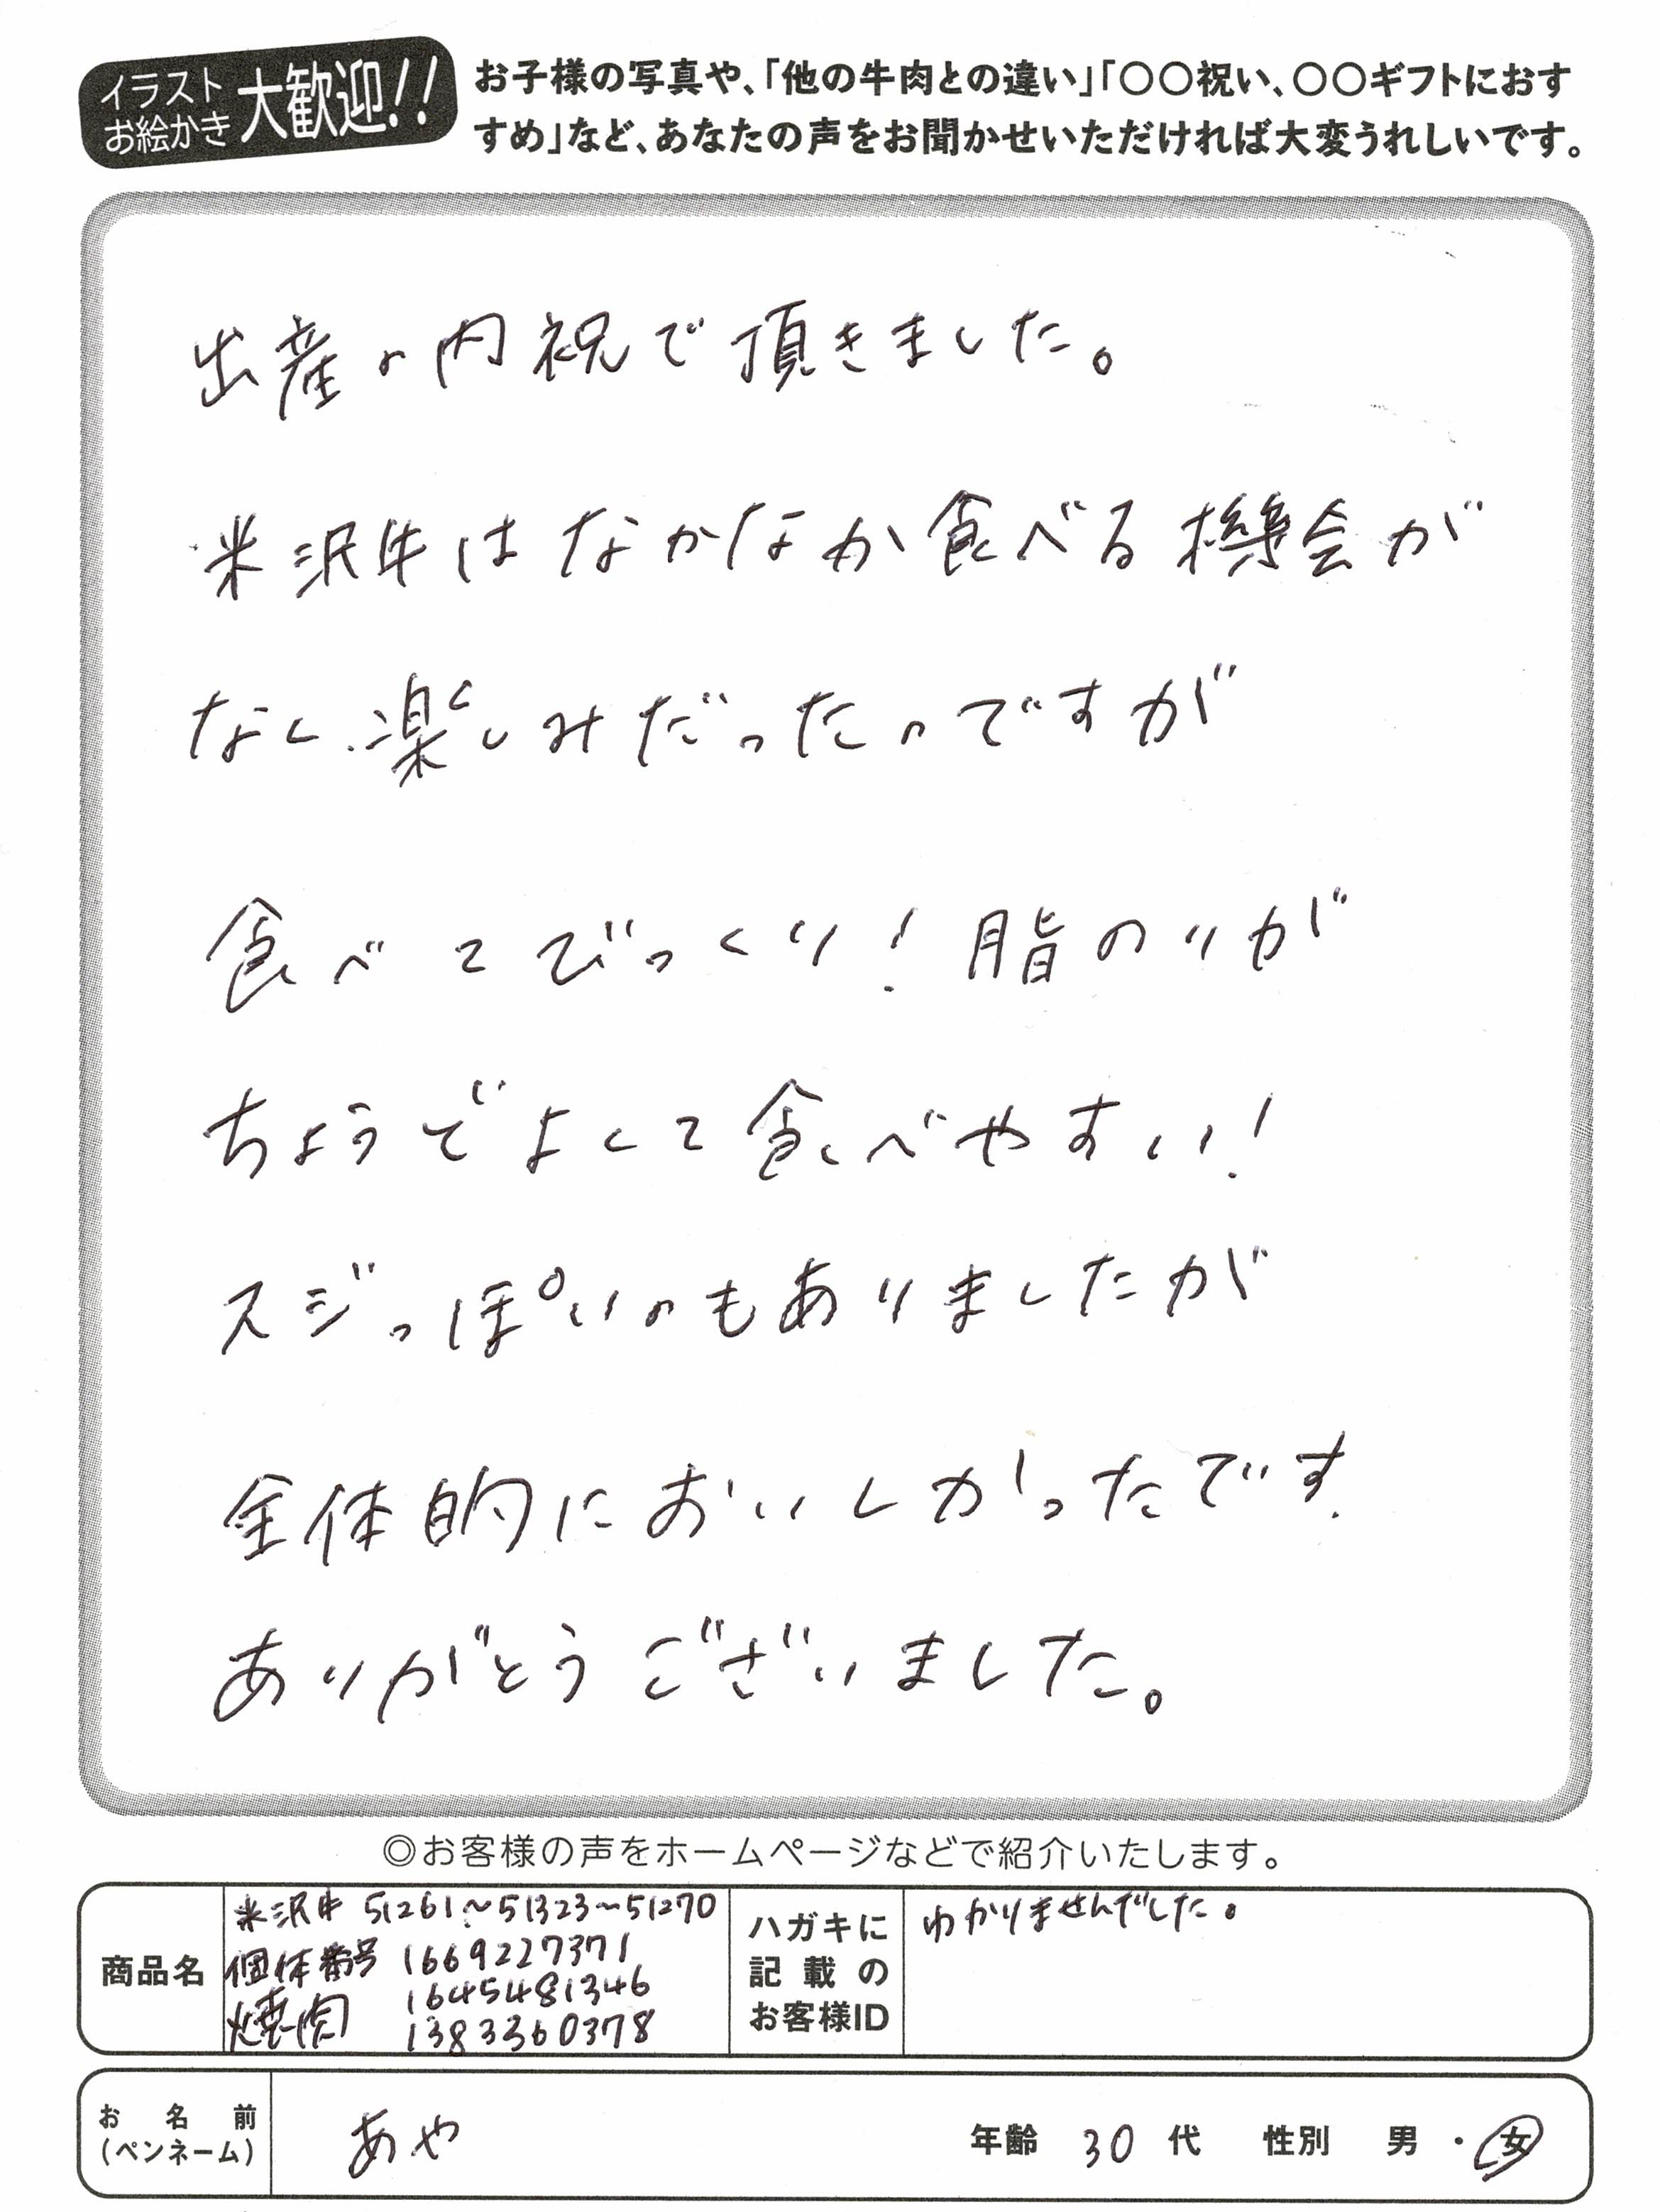 イラスト
お絵かき
大歓迎!!
お子様の写真や、「他の牛肉との違い」「〇〇祝い、〇〇ギフトにおす
すめ」など、あなたの声をお聞かせいただければ大変うれしいです。
出産の内祝で頂きました。
米沢牛はなかなか食べる機会が
なく楽しみだったのですが
食べてびっくり!脂のりが
ちょうどよくて食べやすい!
スジっぽいのもありましたが
全体的においしかったです.
ありがとうございました。
◎お客様の声をホームページなどで紹介いたします。
商品名
米沢牛 51261〜51323〜51270
個体番号 1669227371
1645481346
焼肉 1383360378
ハガキに
記載の
お客様ID
わかりませんでした。
お名前
(ペンネーム)
あや
年齢 30 代 性別 男・女